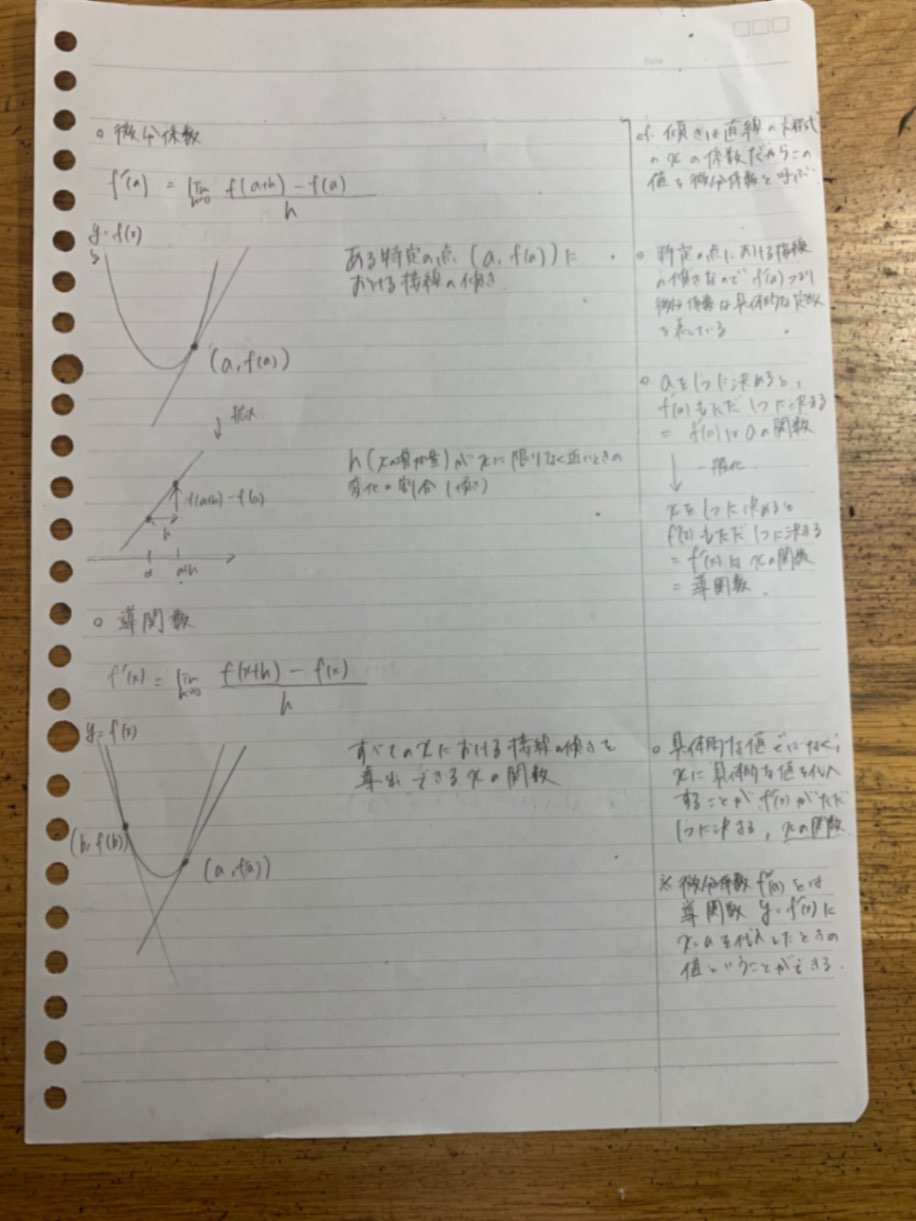 Date
○ 微分係数
f'(a) = lim h→0 f(a+h) - f(a) / h
y = f(x)
(a, f(a))
ある特定の点 (a, f(a)) に
おける接線の傾き
↓ 拡大
f(a+h) - f(a)
h
a a+h
h (xの増加量) が xに限りなく近いときの
変化の割合 (傾き)
○ 導関数
f'(x) = lim h→0 f(x+h) - f(x) / h
y = f(x)
(b, f(b))
(a, f(a))
すべてのxにおける接線の傾きを
導出できるxの関数
cf. 傾きは直線の方程式
のxの係数だからこの
値を微分係数と呼ぶ
○ 特定の点における接線
の傾きなので f'(a) つまり
微分係数は具体的な定数
を表している
○ aを1つに決めると、
f'(a)もただ1つに決まる
= f'(a)はaの関数
↓ 一般化
xを1つに決めると
f'(x)もただ1つに決まる
= f'(x)はxの関数
= 導関数
○ 具体的な値ではなく、
xに具体的な値を代入
することが f'(x)がただ
1つに決まる, xの関数
※ 微分係数 f'(a) とは
導関数 y = f'(x) に
x=aを代入したときの
値ということができる.